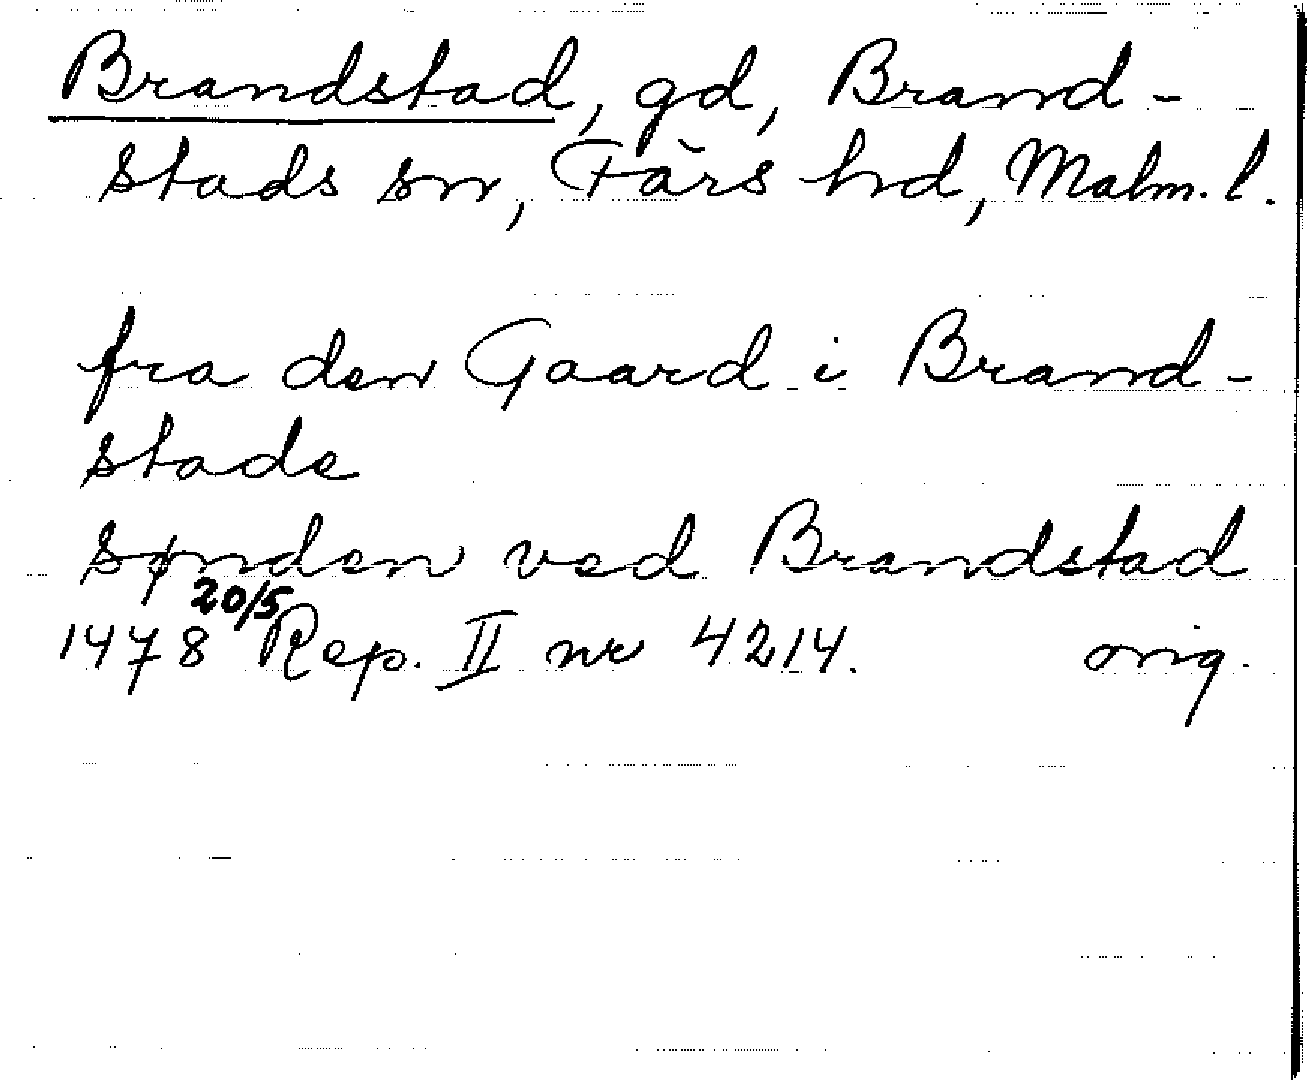 Brandstad, gd, Brand-
stads sn, Färs hd, Malm. l.
fra den Gaard i Brand-
stade
sønden ved Brandstad
1478 20/5 Rep. II nr 4214. orig.